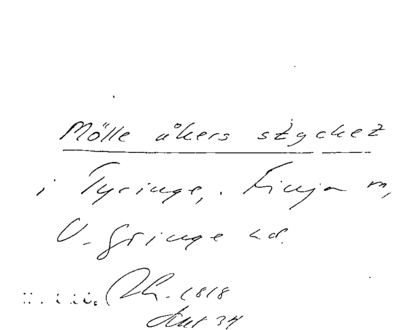 Mölle åkers stycket
i Tyringe, Finja sn,
V. Göinge hd.
Rh. 1818